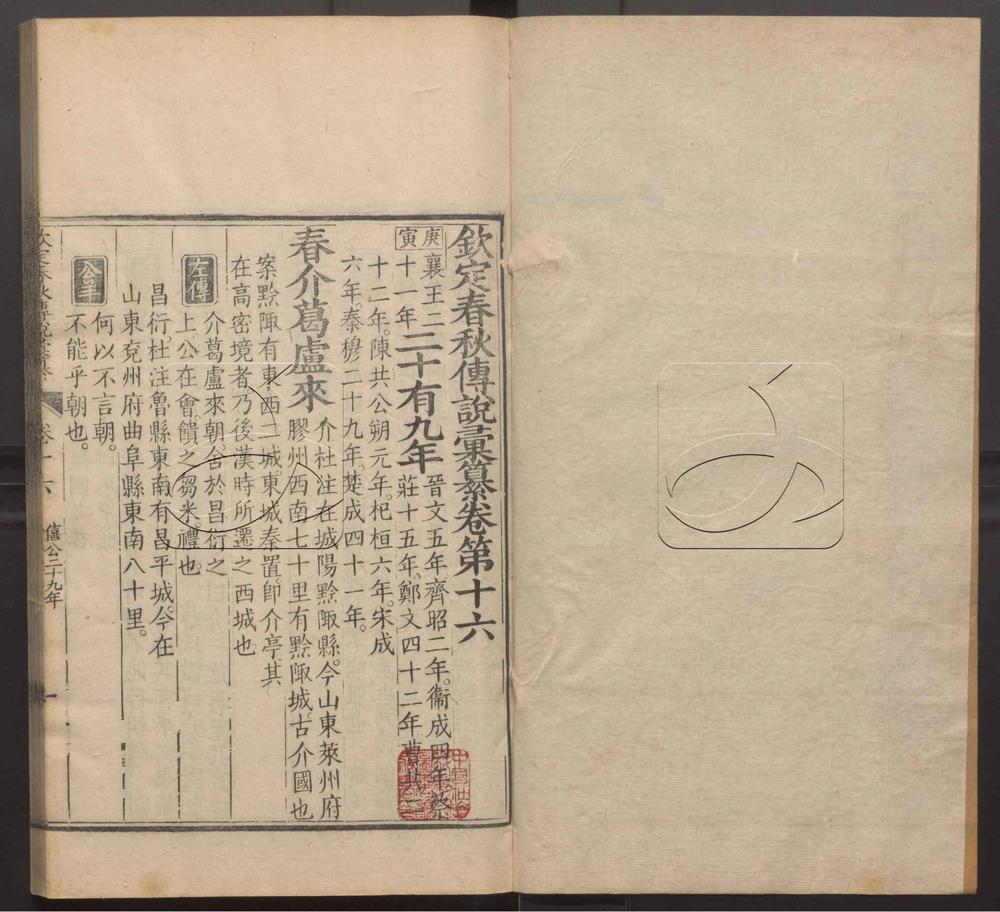 欽定春秋傳說彙纂卷第十六
庚寅
襄王二十一年
二十有九年
晉文五年齊昭二年。衞成四年蔡
莊十五年。鄭文四十二年曹共二
十二年。陳共公朔元年。杞桓六年。宋成
六年。秦穆二十九年。楚成四十一年。
春介葛盧來
介杜注在城陽黔陬縣。今山東萊州府
膠州西南七十里有黔陬城。古介國也
案黔陬有東西二城。東城秦置。卽介亭其
在高密境者。乃後漢時所遷之西城也
左傳
介葛盧來朝。舍於昌衍之
上。公在會。饋之芻米。禮也。
昌衍。杜注魯縣東南有昌平城。今在
山東兗州府曲阜縣東南八十里。
公羊
何以不言朝。
不能乎朝也。
欽定春秋傳說彙纂
卷十六
僖公二十九年
一